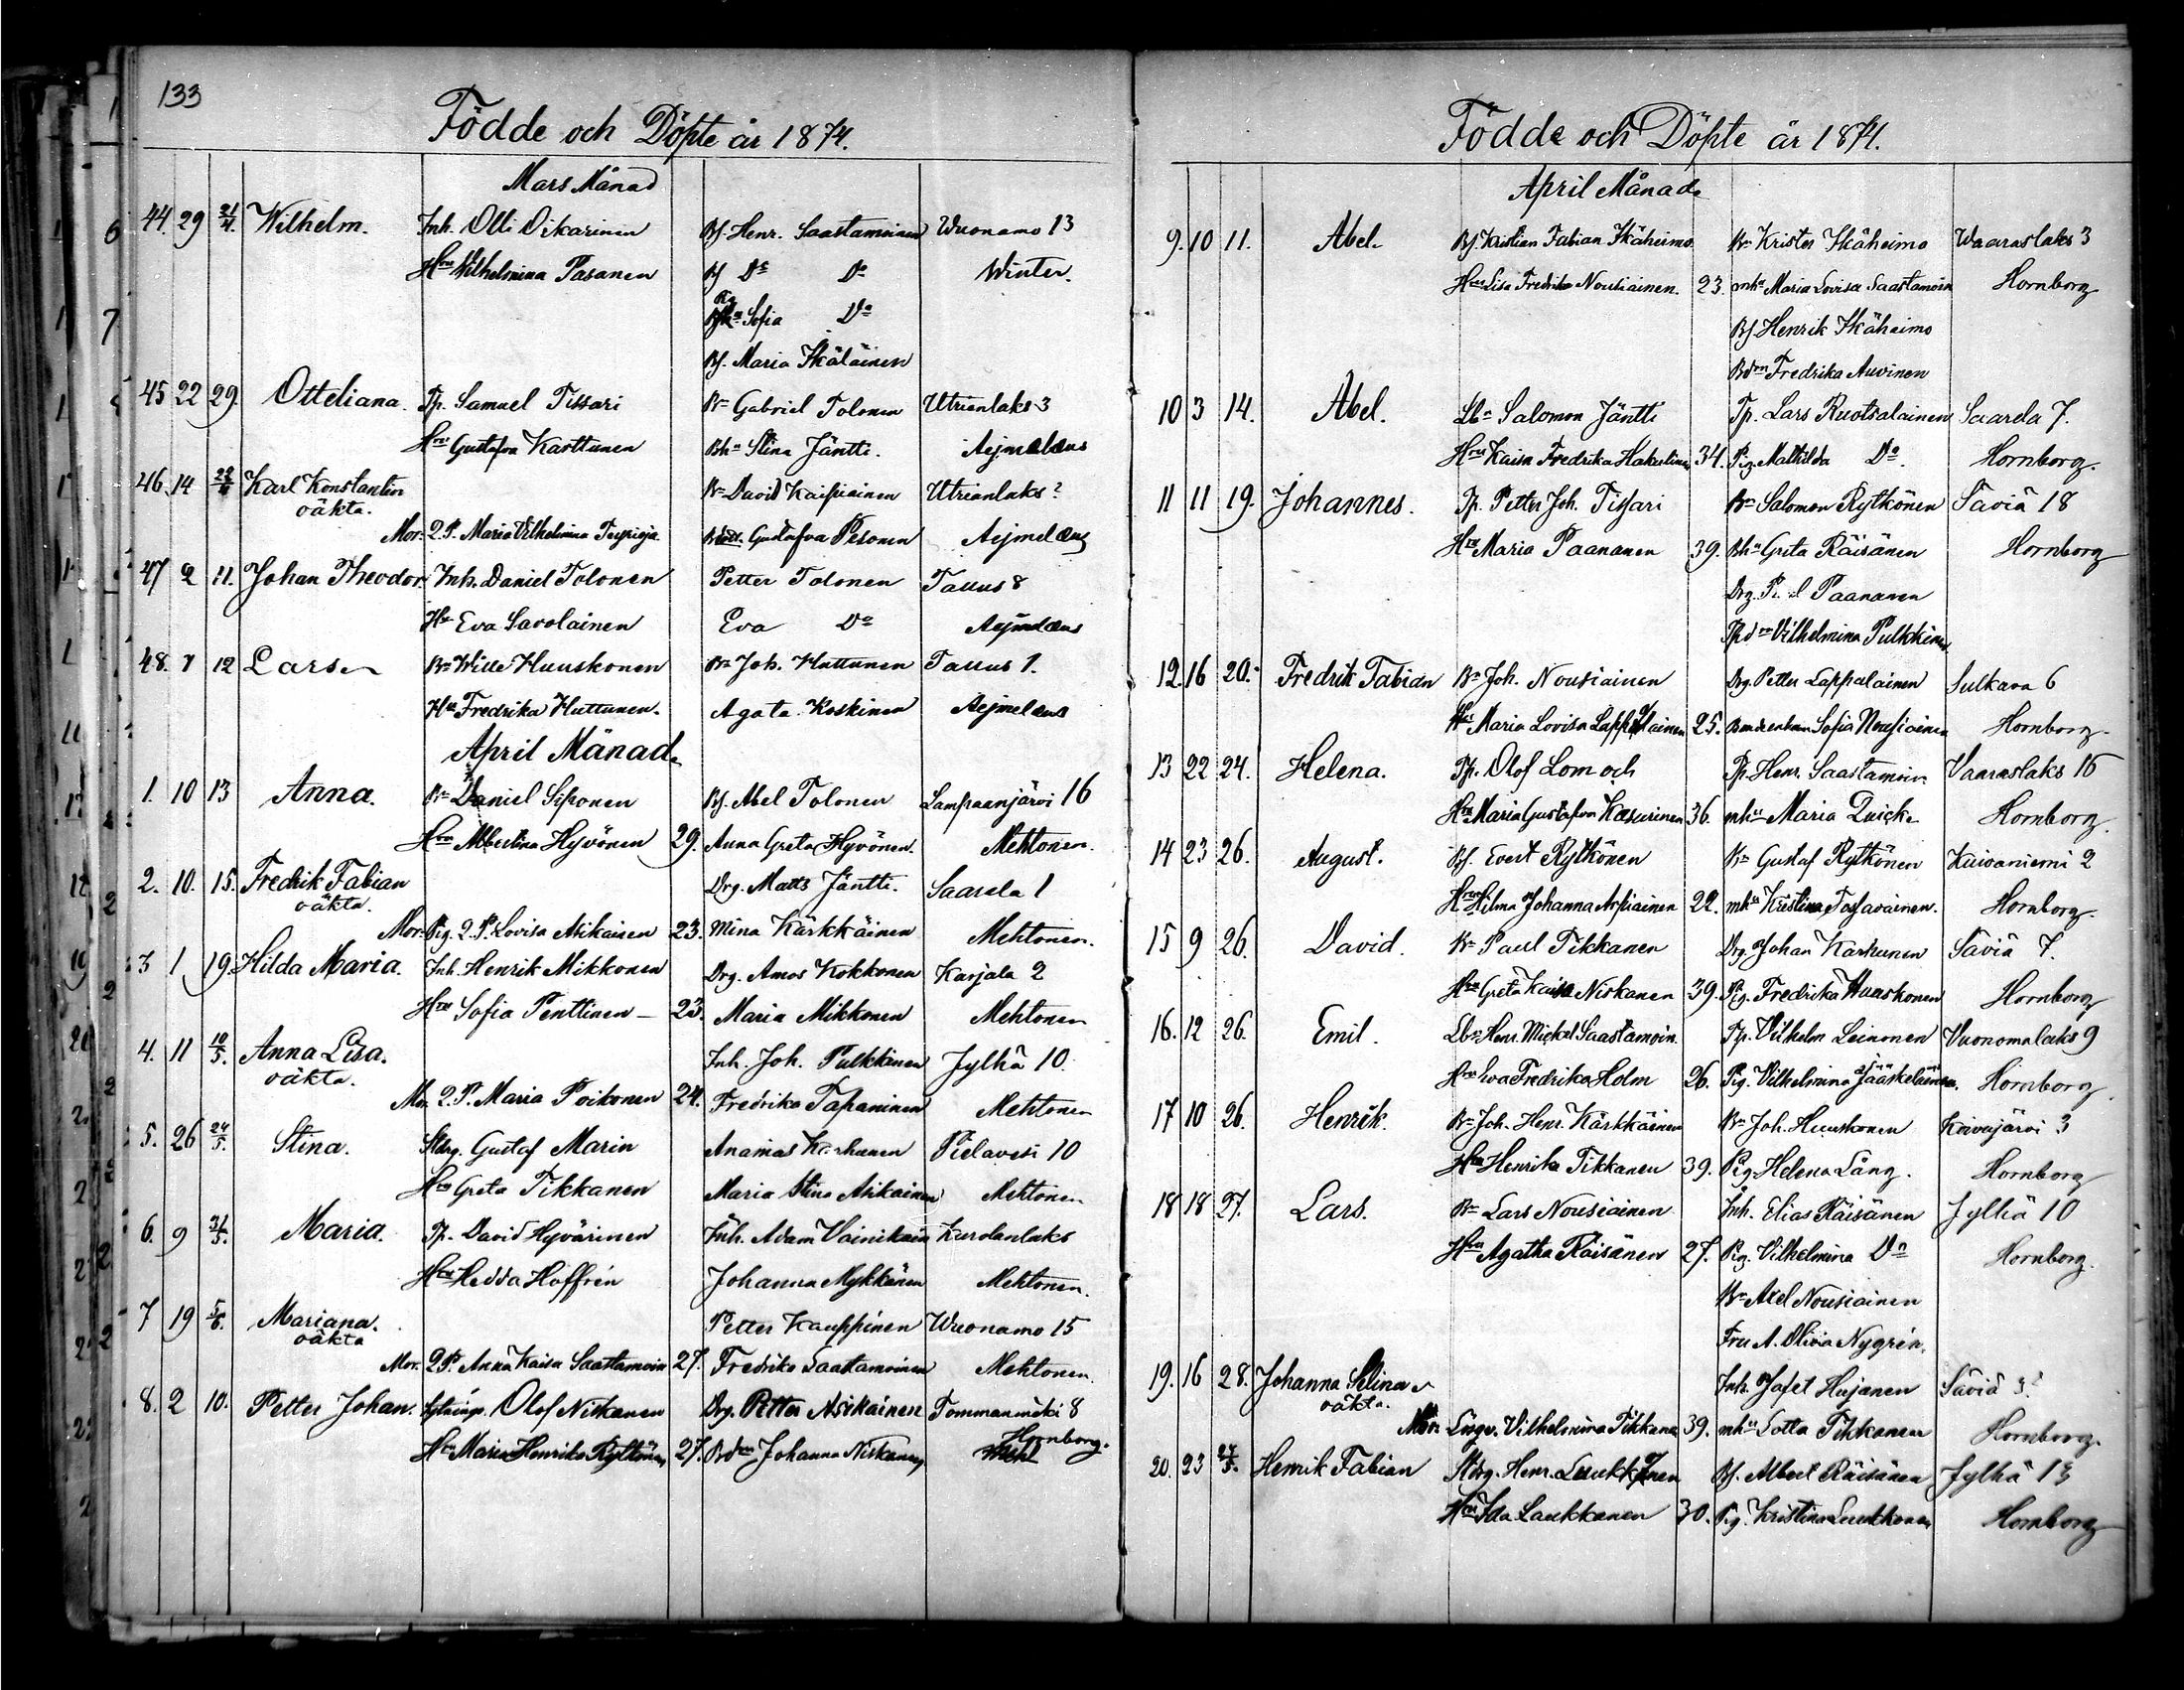 133
Födde och Döpte år 1874.
Mars Månad
44. 29 21/4. Wilhelm. Inh. Olli Oikarinen Bf. Henr. Saastamoinen Wuonamo 13
Hru Vilhelmina Pasanen Bf Do Do Winter.
Sofia Do
Bf. Maria Ikäläinen
45 22 29. Otteliana. Tp. Samuel Tissari Bn Gabriel Tolonen Utrianlaks 3
Hru Gustafva Karttunen Bhu Stina Jäntti. Aejmelæus
46. 14 Karl Konstantin Bn David Kaipiainen Utrianlaks?
oäkta.
Mor: Q. P. Maria Vilhelmina Gustafva Pesonen Aejmelæus
47 2 11. Johan Theodor. Inh. Daniel Tolonen Petter Tolonen Tallus 8
Hu Eva Savolainen Eva Do Aejmelæus
48. 1 12 Lars. Bn Wille Huuskonen Bn Joh. Huttunen Tallus 1.
Hu Fredrika Huttunen. Agata Koskinen Aejmelæus
April Månad.
1. 10 13 Anna. Bn Daniel Siponen Bf. Abel Tolonen Lampaanjärvi 16
Hru Albertina Hyvönen 29. Anna Greta Hyvönen. Mehtonen.
2. 10. 15. Fredrik Fabian Drg. Matts Jäntti. Saarela 1
oäkta.
Mor: Pig. Q. P. Lovisa Asikainen 23. Mina Kärkkäinen Mehtonen.
3 1 19. Hilda Maria. Inh. Henrik Mikkonen Drg. Amos Kokkonen Karjala 2
Hru Sofia Penttinen — 23. Maria Mikkonen Mehtonen
4. 11 10/5. Anna Lisa. Inh. Joh. Pulkkinen Jylhä 10.
oäkta.
Mor. Q. P. Maria Poikonen 24. Fredrika Tapaninen Mehtonen
5. 26 24/5. Stina. Stdrg. Gustaf Marin Ananias Karhunen Pielavesi 10
Hru Greta Tikkanen Maria Stina Asikainen Mehtonen
6. 9 31/5. Maria. Tp. David Hyvärinen Inh. Adam Vainikain Kurolanlaks
Hru Hedda Hoffrén Johanna Mykkänen Mehtonen.
7 19 5/6. Mariana. Petter Kauppinen Wuonamo 15
oäkta
Mor. Q. P. Anna Kaisa Saastamoin 27. Fredrika Saastamoinen Mehtonen.
8. 2 10. Petter Johan. Olof Niskanen Drg. Petter Asikainen Tommanmäki 8
Hru Maria Henrika Rytkönen 27. Bdrn Johanna Niskanen Hornborg.
Födde och Döpte år 1874.
April Månad.
9. 10 11. Abel. Bf. Kristian Fabian Ikäheimo Bn Krister Ikäheimo Waaraslaks 3
Hru Lisa Fredrika Nousiainen. 23. mhu Maria Lovisa Saastamoin Hornborg
Bf Henrik Ikäheimo
Bdrn Fredrika Auvinen
10 3 14. Abel. Lbn Salomon Jäntti Tp. Lars Ruotsalainen Saarela 7.
Hru Kaisa Fredrika Hakulinen 34. Pig. Mathilda Do. Hornborg.
11 11 19. Johannes. Tp. Petter Joh. Tissari Bn Salomon Rytkönen Säviä 18
Hru Maria Paananen 39. Bhu Greta Räisänen Hornborg
Drg. Paananen
Vilhelmina Pulkkinen
12. 16 20. Fredrik Fabian Bn Joh. Nousiainen Drg. Petter Lappalainen Sulkava 6
Hru Maria Lovisa Lappalainen 25. Bondeenkan Sofia Nousiainen Hornborg.
13 22 24. Helena. Tp. Olof Lom och Tp. Henr. Saastamoin. Vaaraslaks 16
Hru Maria Gustafva Kasurinen 36. mhu Maria Quick. Hornborg.
14 23 26. August. Bf. Evert Rytkönen Bn Gustaf Rytkönen Kaivaniemi 2
Hru Hilma Johanna Aspiainen 22. mhu Kristina Tossavainen. Hornborg.
15 9 26. David. Bn Paul Tikkanen Drg. Johan Karhunen Säviä 7.
Hru Greta Kaisa Niskanen 39. Pig. Fredrika Huuskonen Hornborg
16. 12 26. Emil. Lbn Henr. Mickel Saastamoin. Tp. Vilhelm Leinonen Vuonomalaks 9
Hru Eva Fredrika Holm 26. Pig. Vilhelmina Jääskeläinen. Hornborg.
17 10 26. Henrik. Bn Joh. Henr. Kärkkäinen Bn Joh. Huuskonen Koivujärvi 3
Hru Henrika Tikkanen 39. Pig Helena Lång. Hornborg
18 18 27. Lars. Bn Lars Nousiainen Inh. Elias Räisänen Jylhä 10
Hru Agatha Räisänen 27. Pig. Vilhelmina Do Hornborg.
Bn Axel Nousiainen
Fru A. Olivia Nygrén.
19. 16 28. Johanna Selina Inh. Jafet Hujanen Säviä 3?
oäkta.
Mor: Vilhelmina Tikkanen 39. mhu Lotta Tikkanen Hornborg.
20. 23 Henrik Fabian Stdrg. Henr. Laukkanen Bf. Albert Räisänen Jylhä 13
Hru Ida Laukkanen 30. Pig. Kristina Laukkonen Hornborg